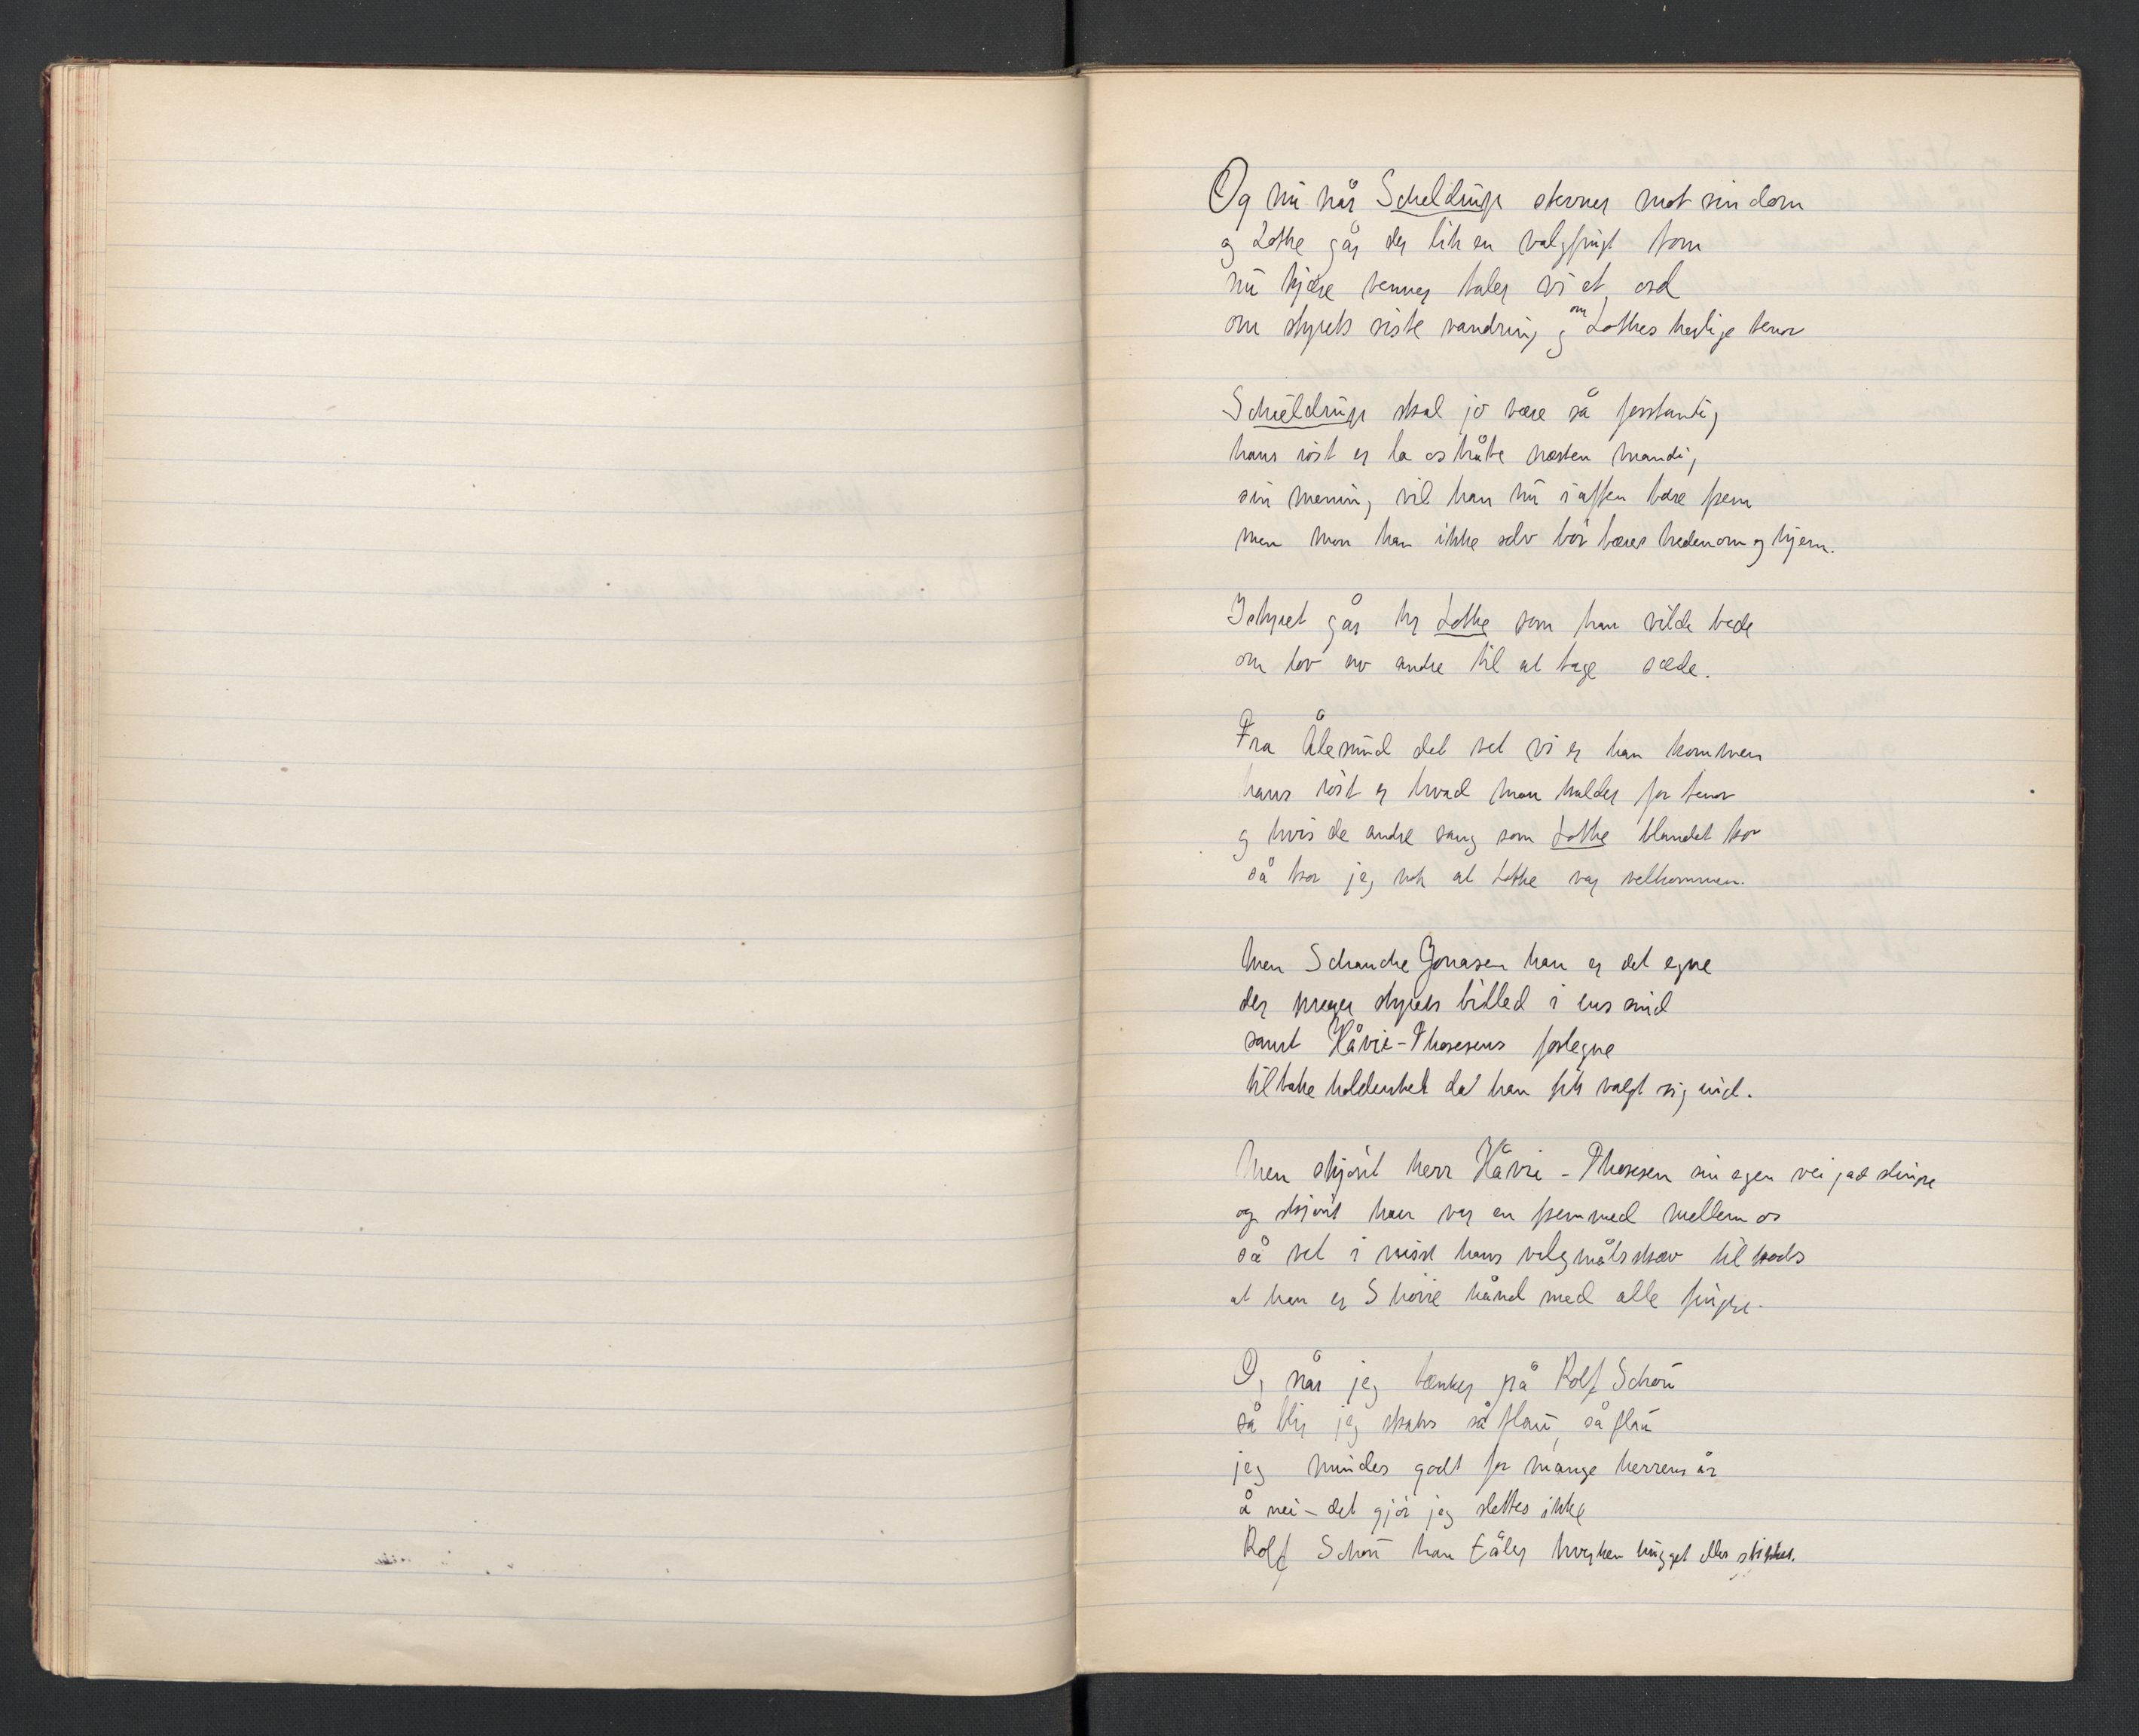 Og nu når Scheldrup stevner mot sin dom
og Lothe går der lik en valgflugt som
nu kjære venner taler vi et ord
om styrets siste vandring og om Lothes herlige tenor

Schieldrup skal jo være så forstandig
hans röst er la os håbe næsten mandig
sin mening vil han nu i aften bære frem
men mon han ikke selv bör bæres hedenom og hjem.

I styret går hr Lothe som han vilde bede
om lov av andre til at tage sæde.

Fra Ålesund det vet vi er han kommen
hans röst er hvad man kalder for tenor
og hvis de andre sang som Lothe blandet kor
så tror jeg nok at Lothe var velkommen.

Men Schanche Jonasen han er det egne
der preger styrets billed i ens sind
samt Håvie-Thoresens forlegne
tilbakeholdenhet da han fik valgt sig ind.

Men skjönt herr Håvie-Thoresen sin egen vei gad slingre
og skjönt han var en fremmed mellem os
så vet i visst hans valgmålskrav til trods
at han er S höire hånd med alle fingre.

Og når jeg tænker på Rolf Schou
så blir jeg straks så flau, så flau
jeg mindes godt for mange herrens år
å nei – det gjör jeg slettes ikke
Rolf Schou han tåler hverken hugget eller stikket.